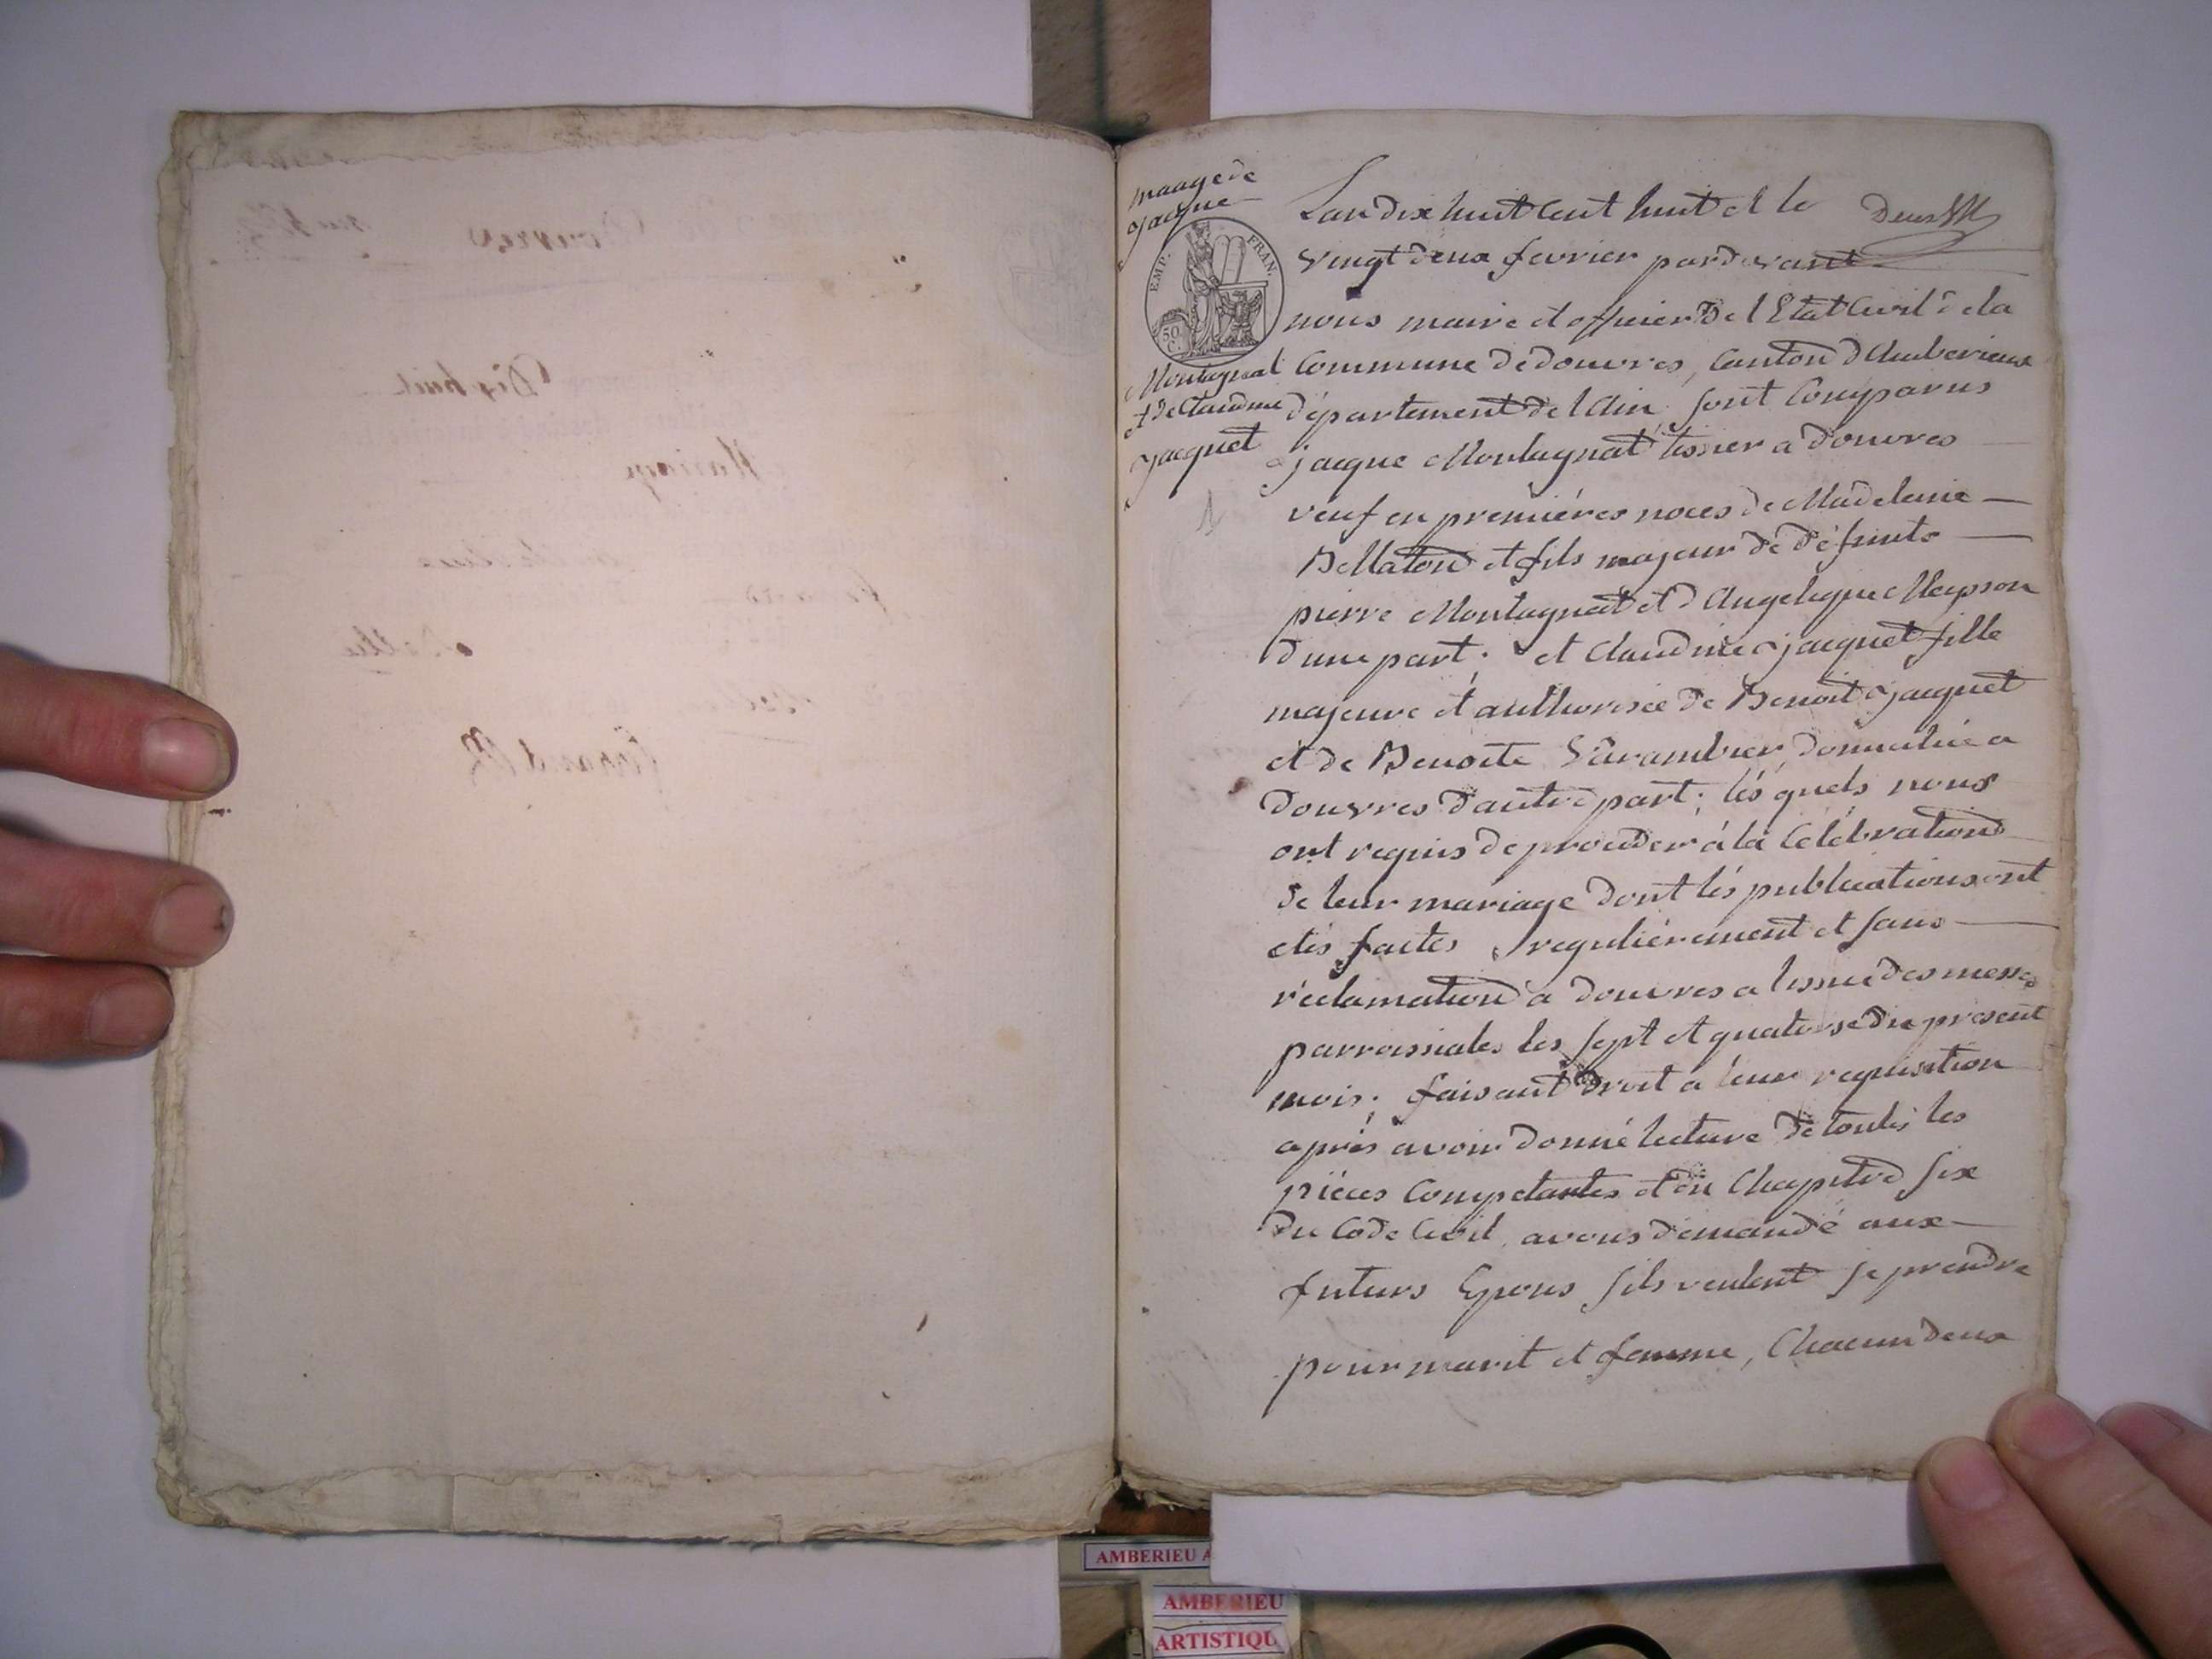 maage de
jacque
EMP. FRAN.
50 C.
Montagnat
et de Claudine
jacquet
1
Lan dix huit cent huit et le
vingt deux fevrier pardevant
nous maire et officier de l Etat Civil de la
Commune de douvres, Canton d Amberieux
département de l Ain sont Comparus
jacque Montagnat tissier a douvres
veuf en premiéres noces de Madelaine
Bellaton et fils majeur de défunts
pierre Montagnat et d Angelique
dune part; et Claudine jacquet fille
majeure et authorisée de Benoit jacquet
et de Benoite Varambier, domiciliée a
douvres d'autre part; lés quels nous
ont requis de proceder á la Célébration
de leur mariage dont lés publications ont
etés faites reguliérement et sans
réclamation a douvres a lissue des messes
parroissiales les sept et quatorse du présent
mois; faisant droit a leur requisition
aprés avoir donné lecture de toutes les
piéces Competantes et du Chapitre six
du Code Civil, avons demandé aux
futurs Epous sils veulent se prendre
pour marit et femme, Chacun deux
AMBERIEU A
AMBERIEU
ARTISTIQU